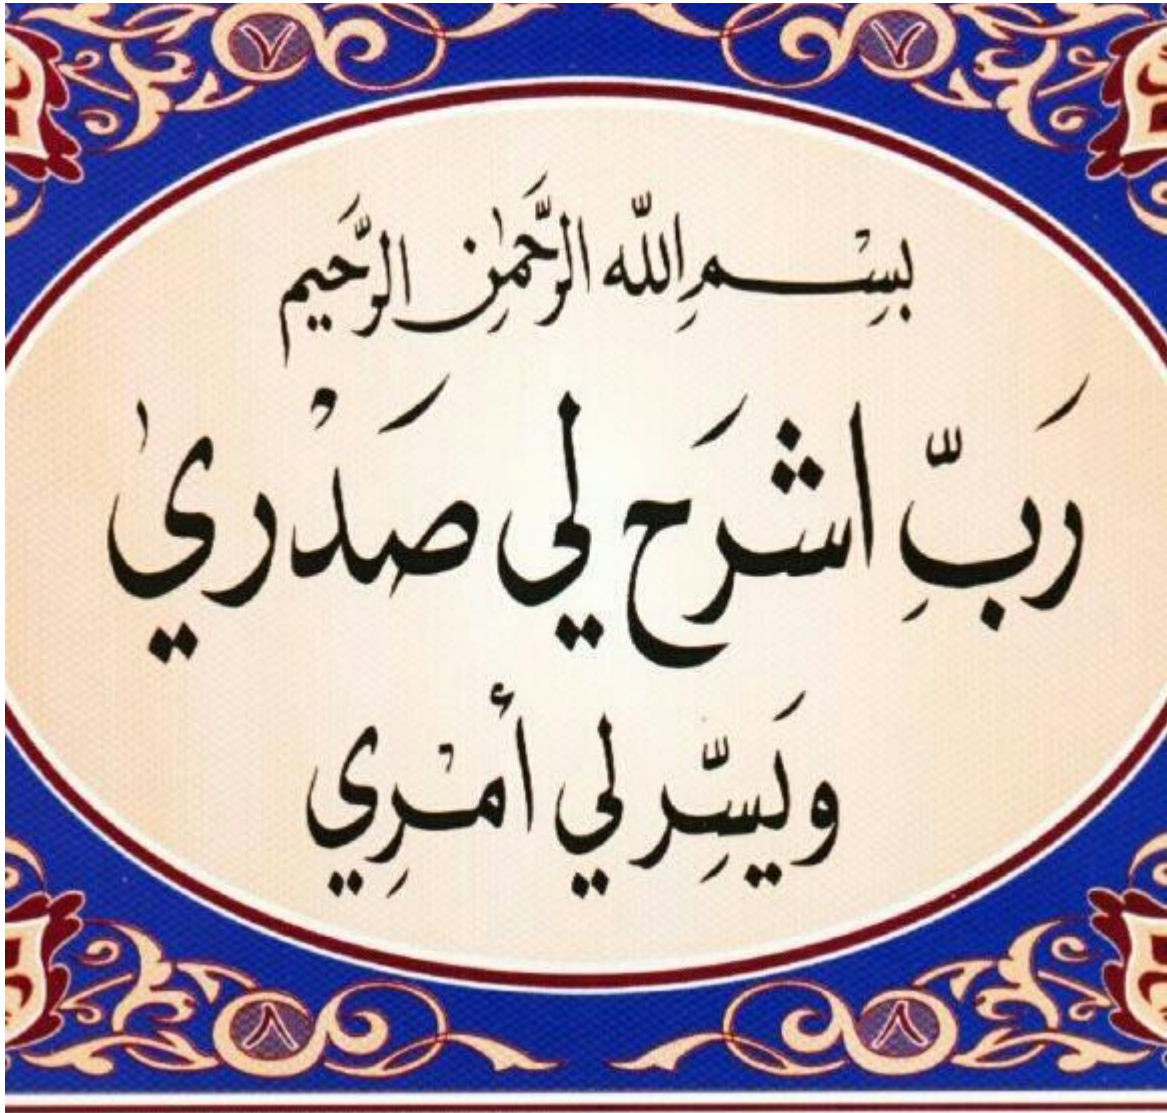 ٧ ٧
بِسْـــمِ اللّه الرَّحْمٰنِ الرَّحيم
رَبِّ اشرَح لي صَدْريٰ
ويَسِّر لي أمْرِي
٨ ٨